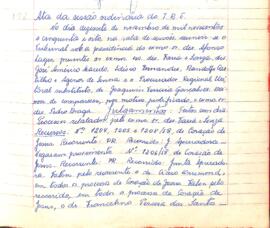 Ata da sessão ordinária do T.R.E.
Ao dia dezoito de novembro de mil novecentos
e cinquenta e oito, na sala de sessões, reuniu-se o
Tribunal sob a presidência do exmo sr. des. Afonso
Lages, presentes os exmos srs. des. Faria e Sousa, drs.
José Américo Macedo, Edésio Fernandes,
Filho e Agenor de Senna e o Procurador Regional Elei-
toral substituto, dr. Joaquim Ferreira Gonçalves. Dei-
xou de comparecer, por motivo justificado, o exmo sr.
des. Pedro Braga. Julgamentos: Feitos em dia
foram relatados pelo exmo sr. des. Faria e Sousa:
Recursos: Nº 1204, 1205 e 1208/58, de Coração de
Jesus. Recorrente: PR. Recorrido: J. Apuradora -
Negaram provimento. Nº 1206/58 de Coração de
Jesus. Recorrente: PR. Recorrido: Junta Apurado-
ra. Falou pelo recorrente o dr.
em todos os processos de Coração de Jesus. Falou pelo
recorrido, em todos os processos de Coração de
Jesus, o dr. Francelino Pereira dos Santos -